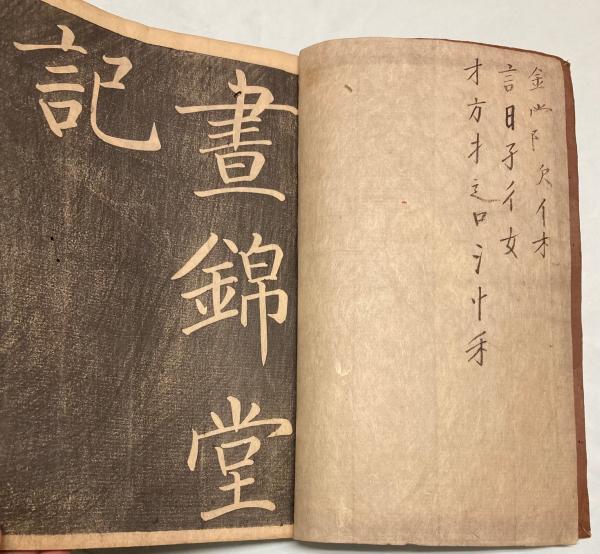 金⺍阝欠亻才
言日子彳女
才方扌辶口氵忄禾
晝錦堂
記